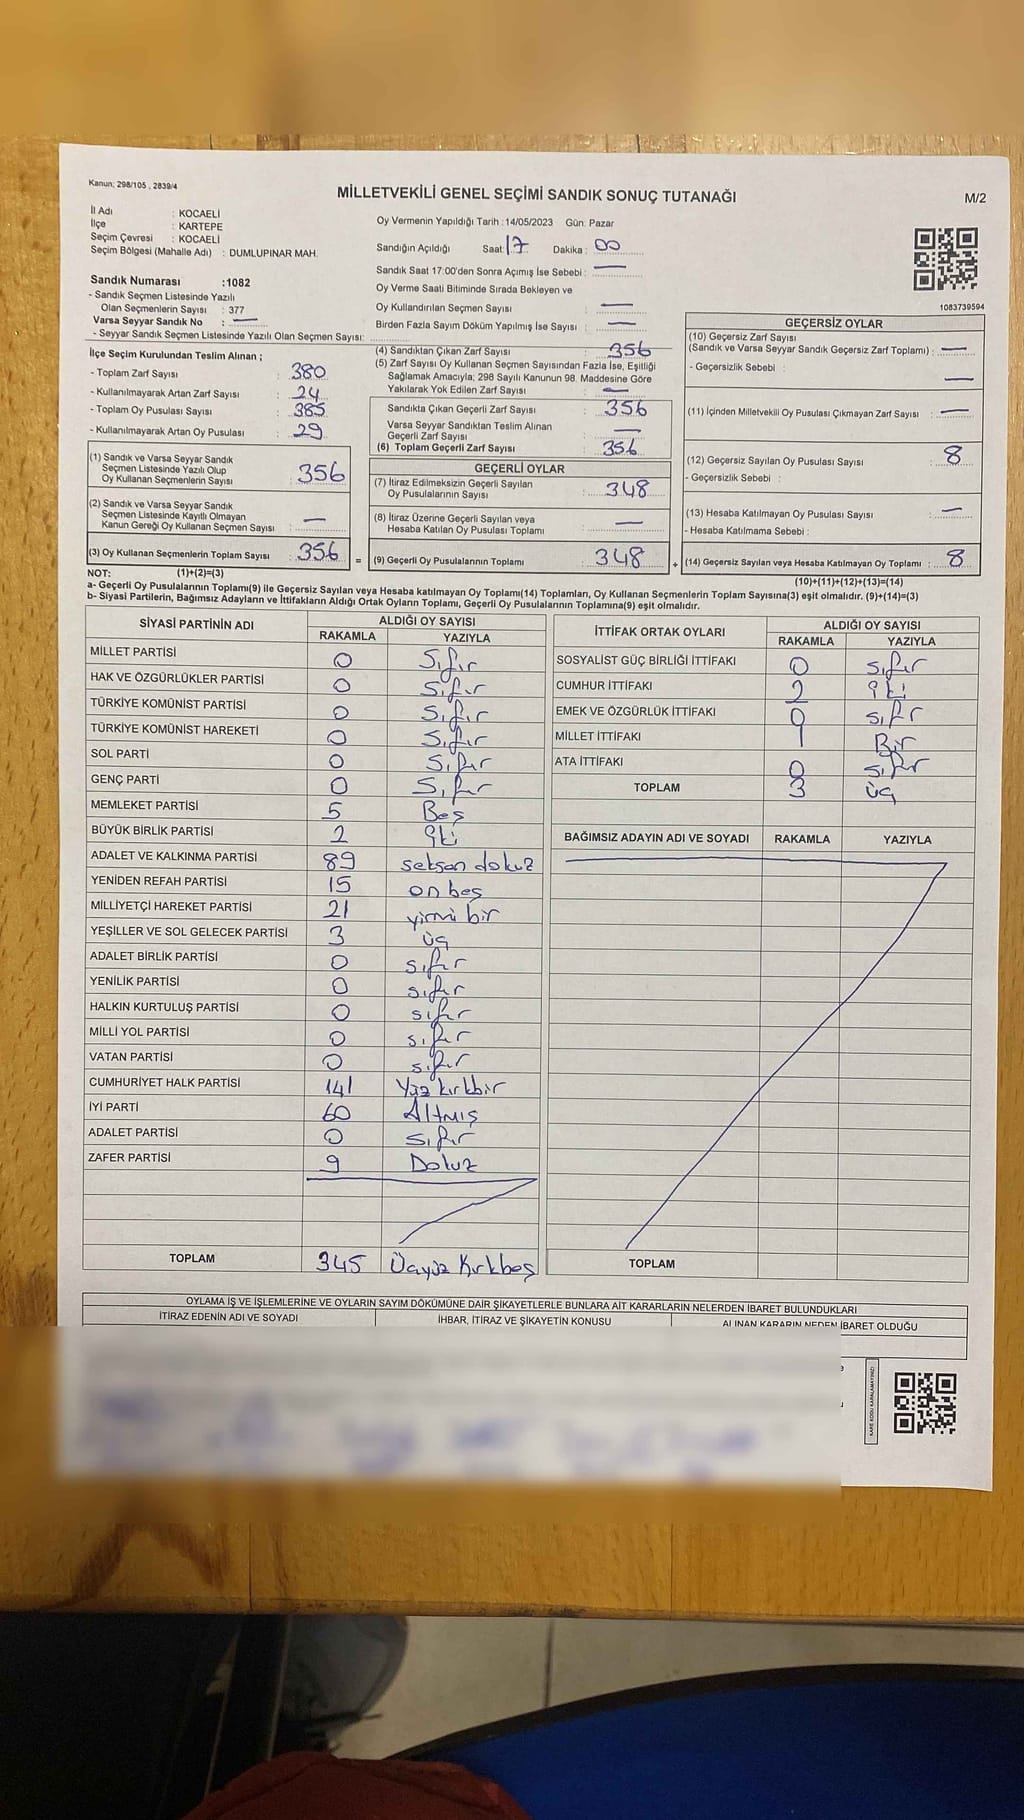 Kanun; 298/105 , 2839/4
MİLLETVEKİLİ GENEL SEÇİMİ SANDIK SONUÇ TUTANAĞI
M/2
İl Adı : KOCAELİ
İlçe : KARTEPE
Seçim Çevresi : KOCAELİ
Seçim Bölgesi (Mahalle Adı) : DUMLUPINAR MAH.
Sandık Numarası :1082
- Sandık Seçmen Listesinde Yazılı
Olan Seçmenlerin Sayısı : 377
Varsa Seyyar Sandık No : —
- Seyyar Sandık Seçmen Listesinde Yazılı Olan Seçmen Sayısı:
Oy Vermenin Yapıldığı Tarih :14/05/2023 Gün: Pazar
Sandığın Açıldığı Saat: 17 Dakika : 00
Sandık Saat 17:00'den Sonra Açımış İse Sebebi : —
Oy Verme Saati Bitiminde Sırada Bekleyen ve
Oy Kullandırılan Seçmen Sayısı : —
Birden Fazla Sayım Döküm Yapılmış İse Sayısı : —
1083739594
İlçe Seçim Kurulundan Teslim Alınan ;
- Toplam Zarf Sayısı : 380
- Kullanılmayarak Artan Zarf Sayısı : 24
- Toplam Oy Pusulası Sayısı : 385
- Kullanılmayarak Artan Oy Pusulası : 29
(1) Sandık ve Varsa Seyyar Sandık
Seçmen Listesinde Yazılı Olup
Oy Kullanan Seçmenlerin Sayısı : 356
(2) Sandık ve Varsa Seyyar Sandık
Seçmen Listesinde Kayıtlı Olmayan
Kanun Gereği Oy Kullanan Seçmen Sayısı : —
(3) Oy Kullanan Seçmenlerin Toplam Sayısı : 356 =
(4) Sandıktan Çıkan Zarf Sayısı : 356
(5) Zarf Sayısı Oy Kullanan Seçmen Sayısından Fazla İse, Eşitliği
Sağlamak Amacıyla; 298 Sayılı Kanunun 98. Maddesine Göre
Yakılarak Yok Edilen Zarf Sayısı : —
Sandıkta Çıkan Geçerli Zarf Sayısı : 356
Varsa Seyyar Sandıktan Teslim Alınan
Geçerli Zarf Sayısı : —
(6) Toplam Geçerli Zarf Sayısı : 356
GEÇERLİ OYLAR
(7) İtiraz Edilmeksizin Geçerli Sayılan
Oy Pusulalarının Sayısı : 348
(8) İtiraz Üzerine Geçerli Sayılan veya
Hesaba Katılan Oy Pusulası Toplamı : —
(9) Geçerli Oy Pusulalarının Toplamı : 348 +
GEÇERSİZ OYLAR
(10) Geçersiz Zarf Sayısı
(Sandık ve Varsa Seyyar Sandık Geçersiz Zarf Toplamı) : —
- Geçersizlik Sebebi : —
(11) İçinden Milletvekili Oy Pusulası Çıkmayan Zarf Sayısı : —
(12) Geçersiz Sayılan Oy Pusulası Sayısı : 8
- Geçersizlik Sebebi :
(13) Hesaba Katılmayan Oy Pusulası Sayısı : —
- Hesaba Katılmama Sebebi :
(14) Geçersiz Sayılan veya Hesaba Katılmayan Oy Toplamı : 8
NOT: (1)+(2)=(3)
(10)+(11)+(12)+(13)=(14)
a- Geçerli Oy Pusulalarının Toplamı(9) ile Geçersiz Sayılan veya Hesaba katılmayan Oy Toplamı(14) Toplamları, Oy Kullanan Seçmenlerin Toplam Sayısına(3) eşit olmalıdır. (9)+(14)=(3)
b- Siyasi Partilerin, Bağımsız Adayların ve İttifakların Aldığı Ortak Oyların Toplamı, Geçerli Oy Pusulalarının Toplamına(9) eşit olmalıdır.
SİYASİ PARTİNİN ADI ALDIĞI OY SAYISI
RAKAMLA YAZIYLA
MİLLET PARTİSİ 0 Sıfır
HAK VE ÖZGÜRLÜKLER PARTİSİ 0 Sıfır
TÜRKİYE KOMÜNİST PARTİSİ 0 Sıfır
TÜRKİYE KOMÜNİST HAREKETİ 0 Sıfır
SOL PARTİ 0 Sıfır
GENÇ PARTİ 0 Sıfır
MEMLEKET PARTİSİ 5 Beş
BÜYÜK BİRLİK PARTİSİ 2 İki
ADALET VE KALKINMA PARTİSİ 89 seksen dokuz
YENİDEN REFAH PARTİSİ 15 on beş
MİLLİYETÇİ HAREKET PARTİSİ 21 yirmi bir
YEŞİLLER VE SOL GELECEK PARTİSİ 3 üç
ADALET BİRLİK PARTİSİ 0 sıfır
YENİLİK PARTİSİ 0 sıfır
HALKIN KURTULUŞ PARTİSİ 0 sıfır
MİLLİ YOL PARTİSİ 0 sıfır
VATAN PARTİSİ 0 sıfır
CUMHURİYET HALK PARTİSİ 141 Yüz kırkbir
İYİ PARTİ 60 Altmış
ADALET PARTİSİ 0 sıfır
ZAFER PARTİSİ 9 Dokuz
TOPLAM 345 Üçyüz Kırkbeş
İTTİFAK ORTAK OYLARI ALDIĞI OY SAYISI
RAKAMLA YAZIYLA
SOSYALİST GÜÇ BİRLİĞİ İTTİFAKI 0 sıfır
CUMHUR İTTİFAKI 2 İki
EMEK VE ÖZGÜRLÜK İTTİFAKI 0 sıfır
MİLLET İTTİFAKI 1 Bir
ATA İTTİFAKI 0 sıfır
TOPLAM 3 üç
BAĞIMSIZ ADAYIN ADI VE SOYADI RAKAMLA YAZIYLA
TOPLAM
OYLAMA İŞ VE İŞLEMLERİNE VE OYLARIN SAYIM DÖKÜMÜNE DAİR ŞİKAYETLERLE BUNLARA AİT KARARLARIN NELERDEN İBARET BULUNDUKLARI
İTİRAZ EDENİN ADI VE SOYADI İHBAR, İTİRAZ VE ŞİKAYETİN KONUSU ALINAN KARARIN NEDEN İBARET OLDUĞU
KARE KODU KARALAMAYINIZ!